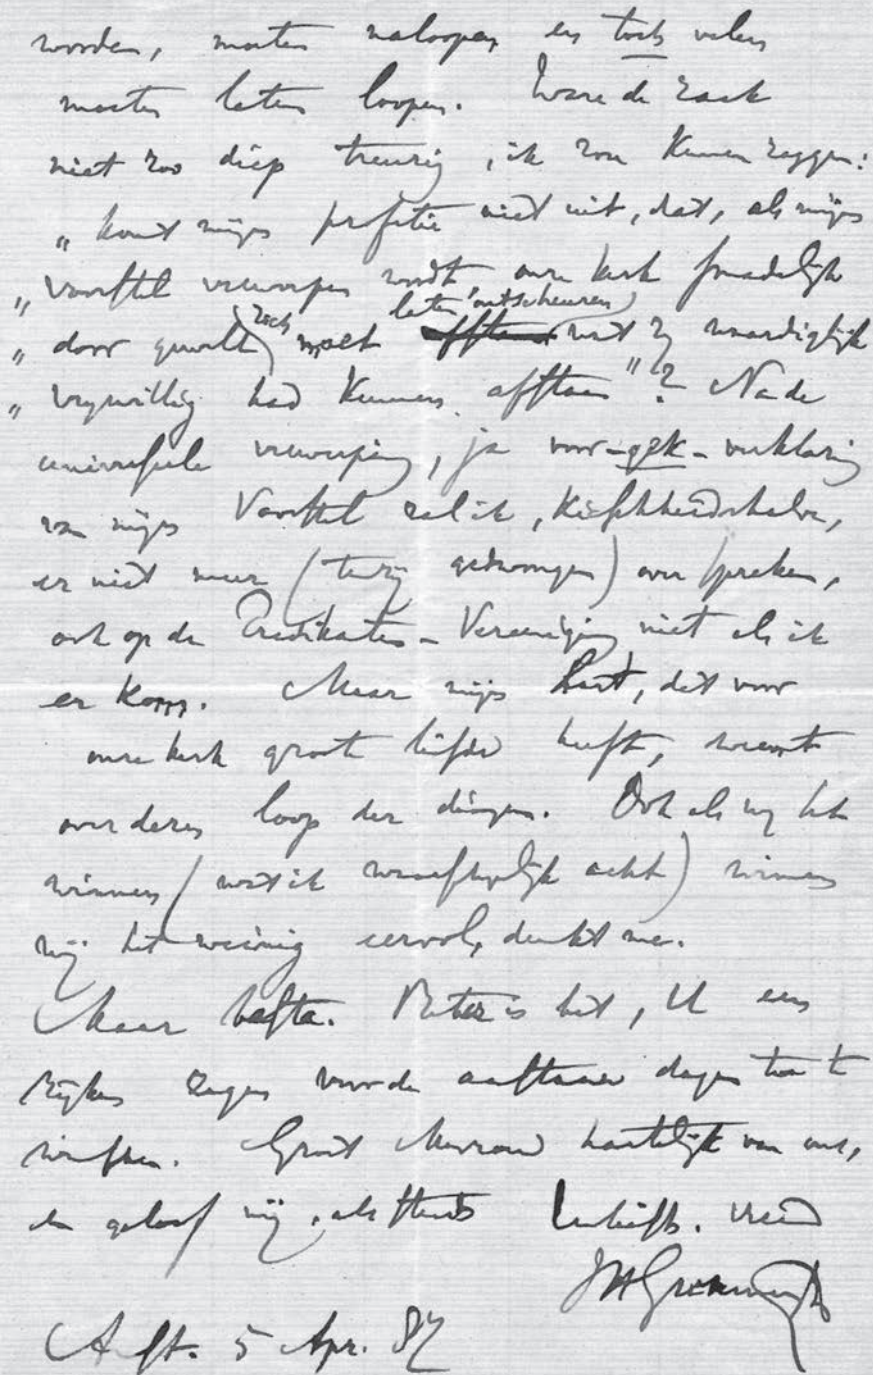 worden, moeten naloopen en toch velen
moeten laten loopen. Ware de zaak
niet zoo diep treurig, ik zou kunnen zeggen:
„komt mijn profetie niet uit, dat, als mijn
„voorstel verworpen wordt, onze kerk smadelijk
„door geweld zich moet laten ontscheuren wat zij waardiglijk
„vrijwillig had kunnen afstaan"? Na de
universeele verwerping, ja voor-gek-verklaring
van mijn Voorstel zal ik, kieschheidshalve,
er niet meer (tenzij gedwongen) over spreken,
ook op de Predikanten-Vereeniging niet als ik
er kom. Maar mijn hart, dat voor
onze kerk groote liefde heeft, weent
over dezen loop der dingen. Ook als wij het
winnen (wat ik waarschijnlijk acht) winnen
wij het weinig eervol, denkt me.
Maar basta. Beter is het, U een
rijken zegen voor de aanstaande dagen toe te
wenschen. Groet Mevrouw hartelijk van ons,
en geloof mij, als steeds Uw liefh. vriend
JHGunning
Amst. 5 Apr. 87